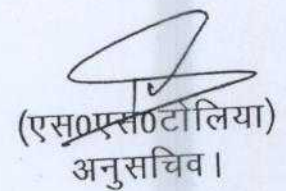 (एस0एस0टोलिया)
अनुसचिव।